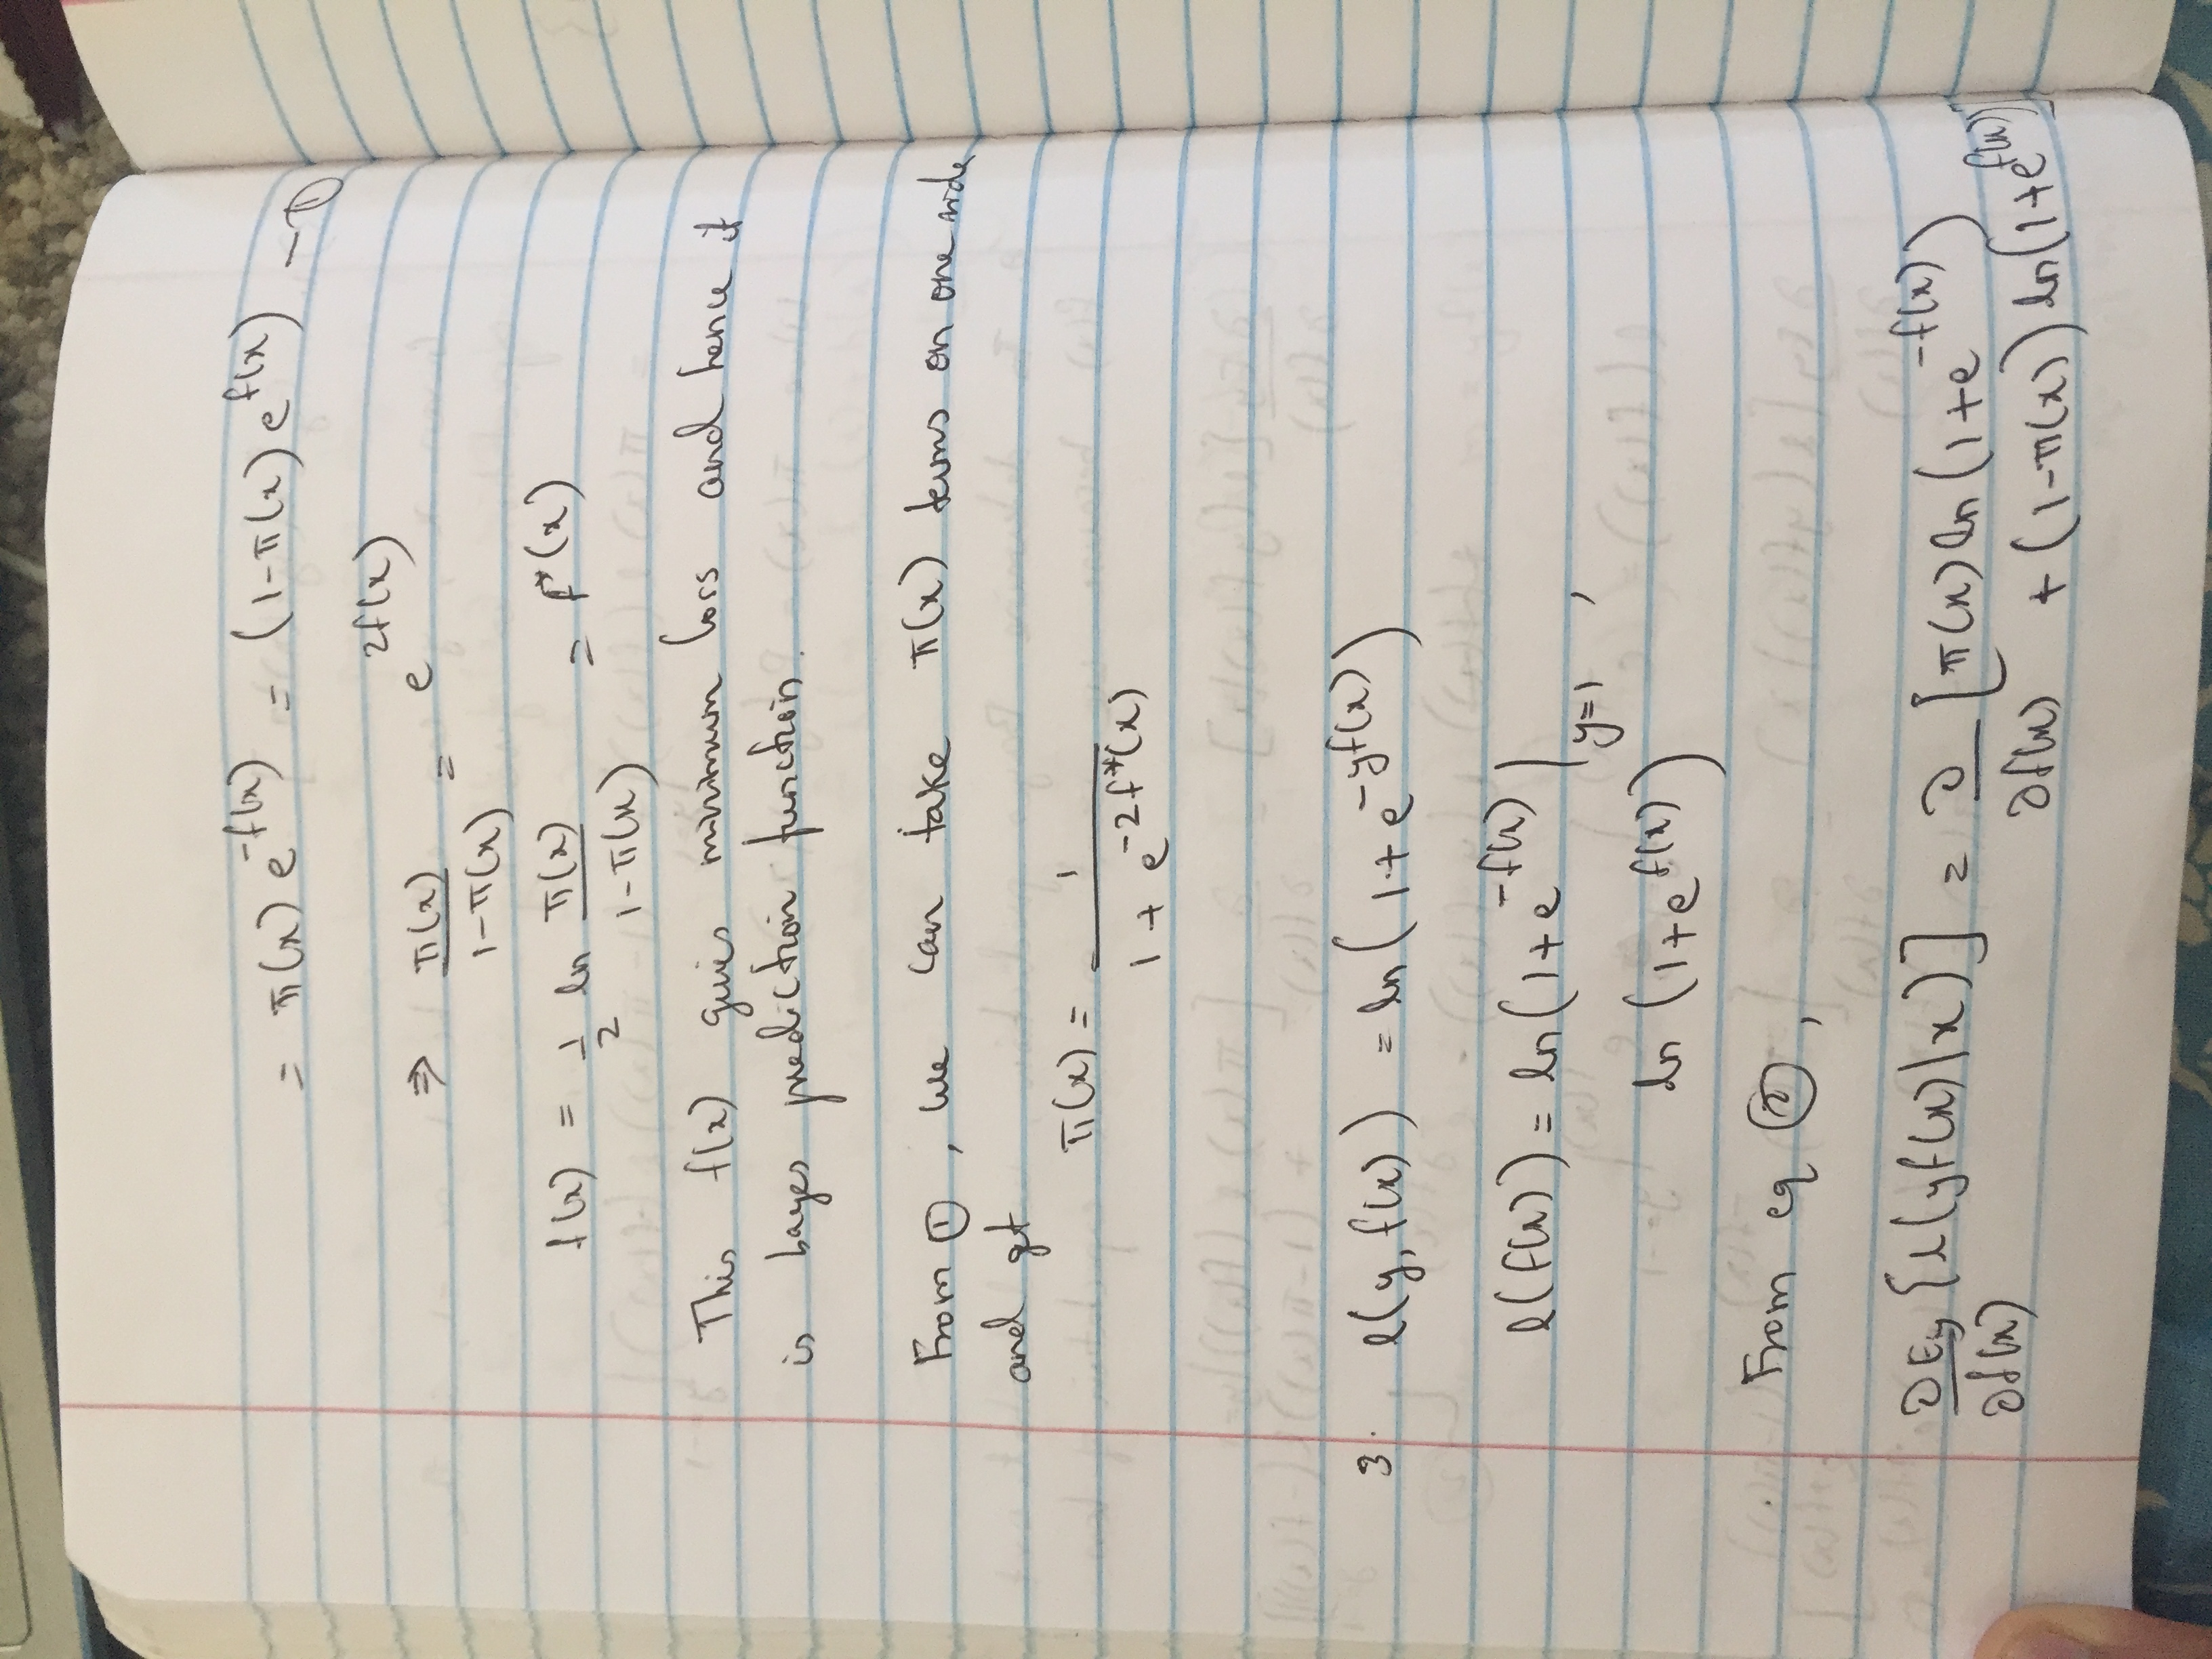 = π(x) e^{-f(x)} = (1-π(x) e^{f(x)}) - ①
⇒ π(x)/(1-π(x)) = e^{2f(x)}
f(x) = 1/2 ln π(x)/(1-π(x)) = f*(x)
This f(x) gives minimum loss and hence it
is bayes prediction function.
From ①, we can take π(x) terms on one side
and get
π(x) = 1/(1 + e^{-2f*(x)})
3. l(y, f(x)) = ln(1+e^{-yf(x)})
l(f(x)) = ln(1+e^{-f(x)})|_{y=1} ,
ln (1+e^{f(x)})
From eq ②,
∂E_y/∂f(x) {l(yf(x)|x)] = ∂/∂f(x) [π(x) ln(1+e^{-f(x)})
+ (1-π(x)) ln(1+e^{f(x)})]